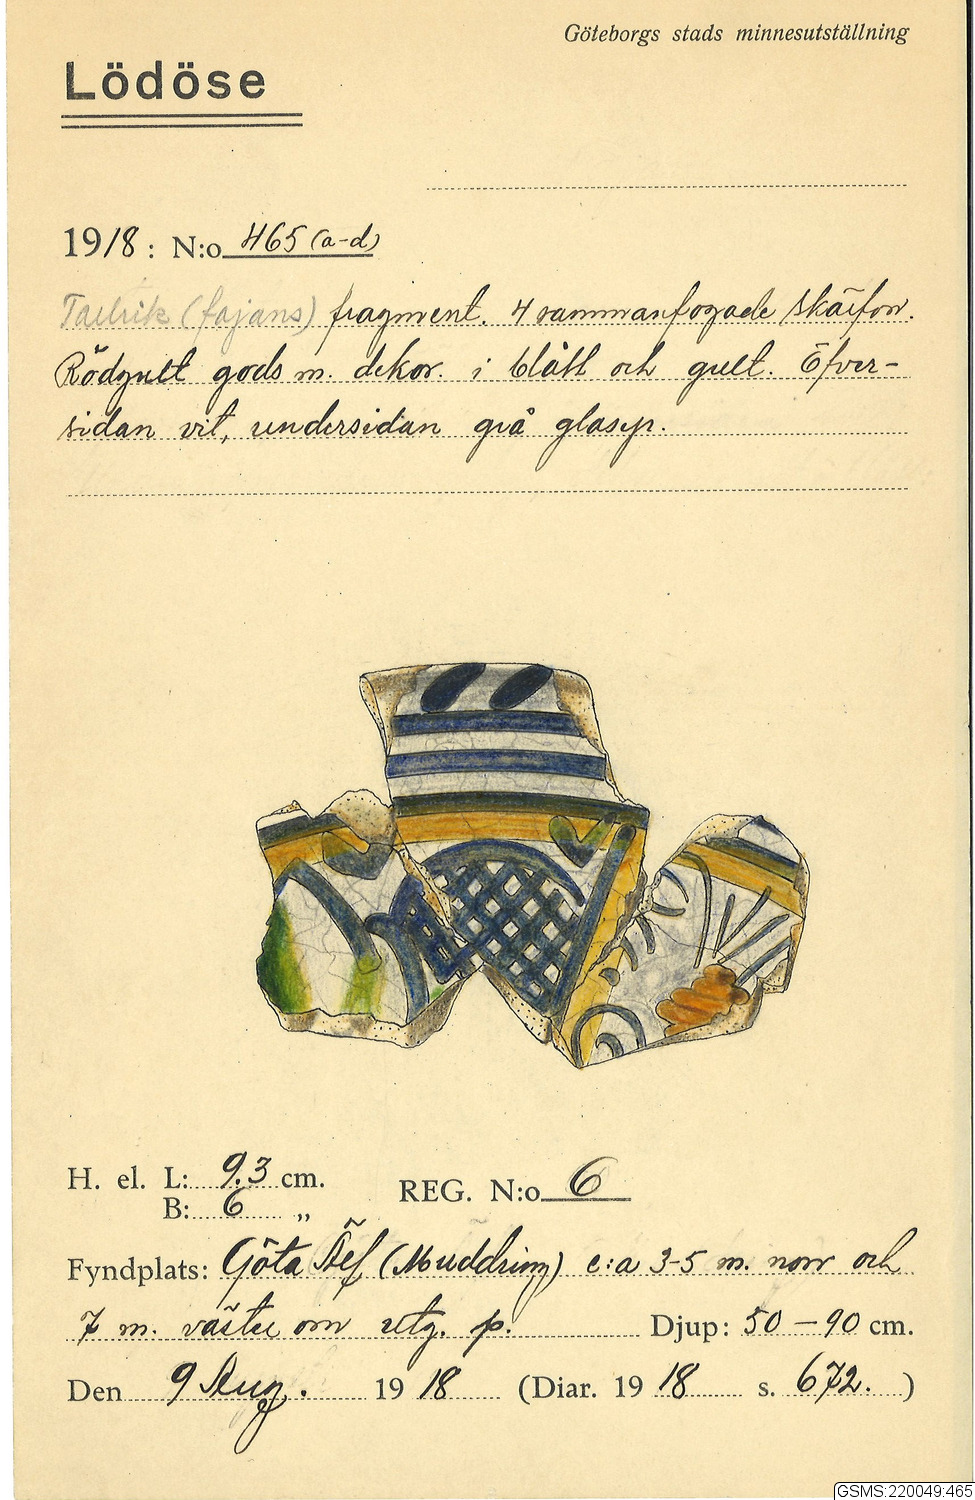 Göteborgs stads minnesutställning
Lödöse
1918: N:o 465 (a-d)
Tallrik (fajans) fragment. 4 sammanfogade skärfvor.
Rödgult gods m. dekor. i blått och gult. Öfver-
sidan vit, undersidan grå glasyr.
H. el. L: 9.3 cm.
B: 6 „
REG. N:o 6
Fyndplats: Göta Älf (Muddring) c:a 3-5 m. norr och
7 m. väster om utg. p. Djup: 50 – 90 cm.
Den 9 Aug. 1918 (Diar. 1918 s. 672. )
GSMS:220049:465